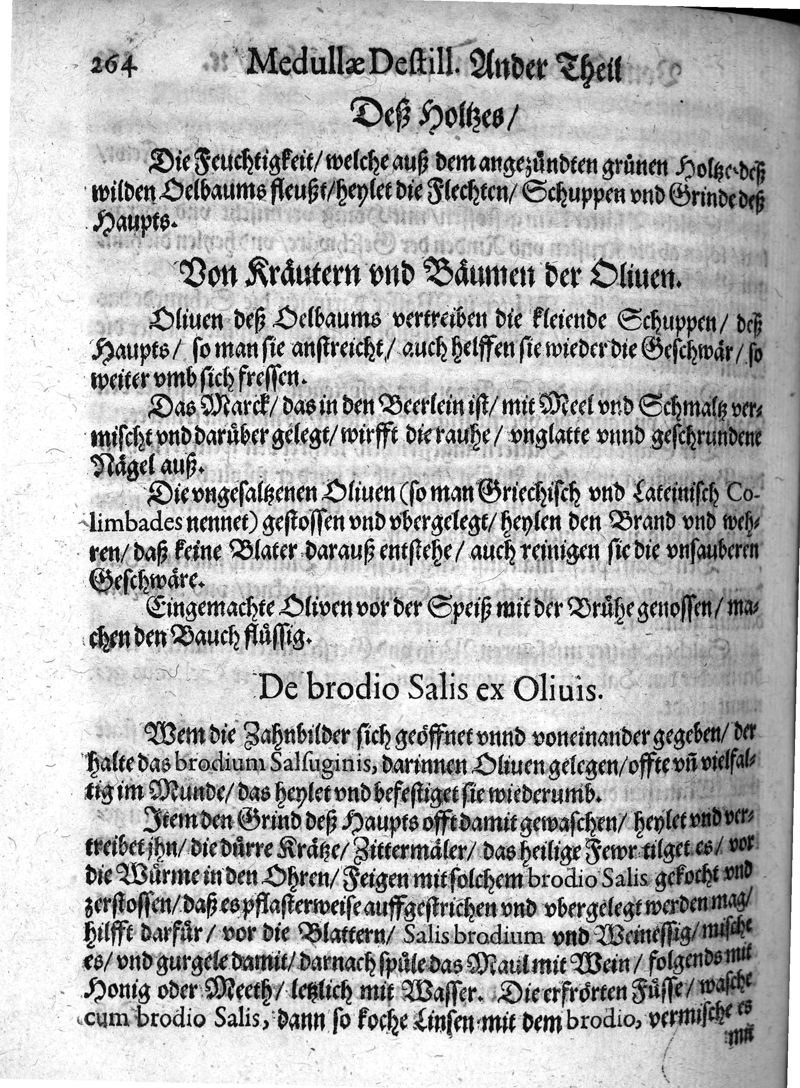 264 Medullæ Destill. Ander Theil
Deß Holtzes/
Die Feuchtigkeit/ welche auß dem angezündten grünen Holtze deß
wilden Oelbaums fleußt/ heylet die Flechten/ Schuppen vnd Grinde deß
Haupts.
Von Kräutern vnd Bäumen der Oliuen.
Oliuen deß Oelbaums vertreiben die kleiende Schuppen/ deß
Haupts/ so man sie anstreicht/ auch helffen sie wieder die Geschwär/ so
weiter vmb sich fressen.
Das Marck/ das in den Beerlein ist/ mit Meel vnd Schmaltz ver-
mischt vnd darüber gelegt/ wirfft die rauhe/ vnglatte vnnd geschrundene
Nägel auß.
Die vngesaltzenen Oliuen (so man Griechisch vnd Lateinisch Co-
limbades nennet) gestossen vnd vbergelegt/ heylen den Brand vnd weh-
ren/ daß keine Blater darauß entstehe/ auch reinigen sie die vnsauberen
Geschwäre.
Eingemachte Oliven vor der Speiß mit der Brühe genossen/ ma-
chen den Bauch flüssig.
De brodio Salis ex Oliuis.
Wem die Zahnbilder sich geöffnet vnnd voneinander gegeben/ der
halte das brodium Salsuginis, darinnen Oliuen gelegen/ offte vn̄ vielfal-
tig im Munde/ das heylet vnd befestiget sie wiederumb.
Item den Grind deß Haupts offt damit gewaschen/ heylet vnd ver-
treibet jhn/ die dürre Krätze/ Zittermäler/ das heilige Fewr tilget es/ vor
die Würme in den Ohren/ Feigen mit solchem brodio Salis gekocht vnd
zerstossen/ daß es pflasterweise auffgestrichen vnd vbergelegt werden mag/
hilfft darfür/ vor die Blattern/ Salis brodium vnd Weinessig/ mische
es/ vnd gurgele damit/ darnach spüle das Maul mit Wein/ folgends mit
Honig oder Meeth/ letzlich mit Wasser. Die erfrörten Füsse/ wasche
cum brodio Salis, dann so koche Linsen mit dem brodio, vermische es
mit